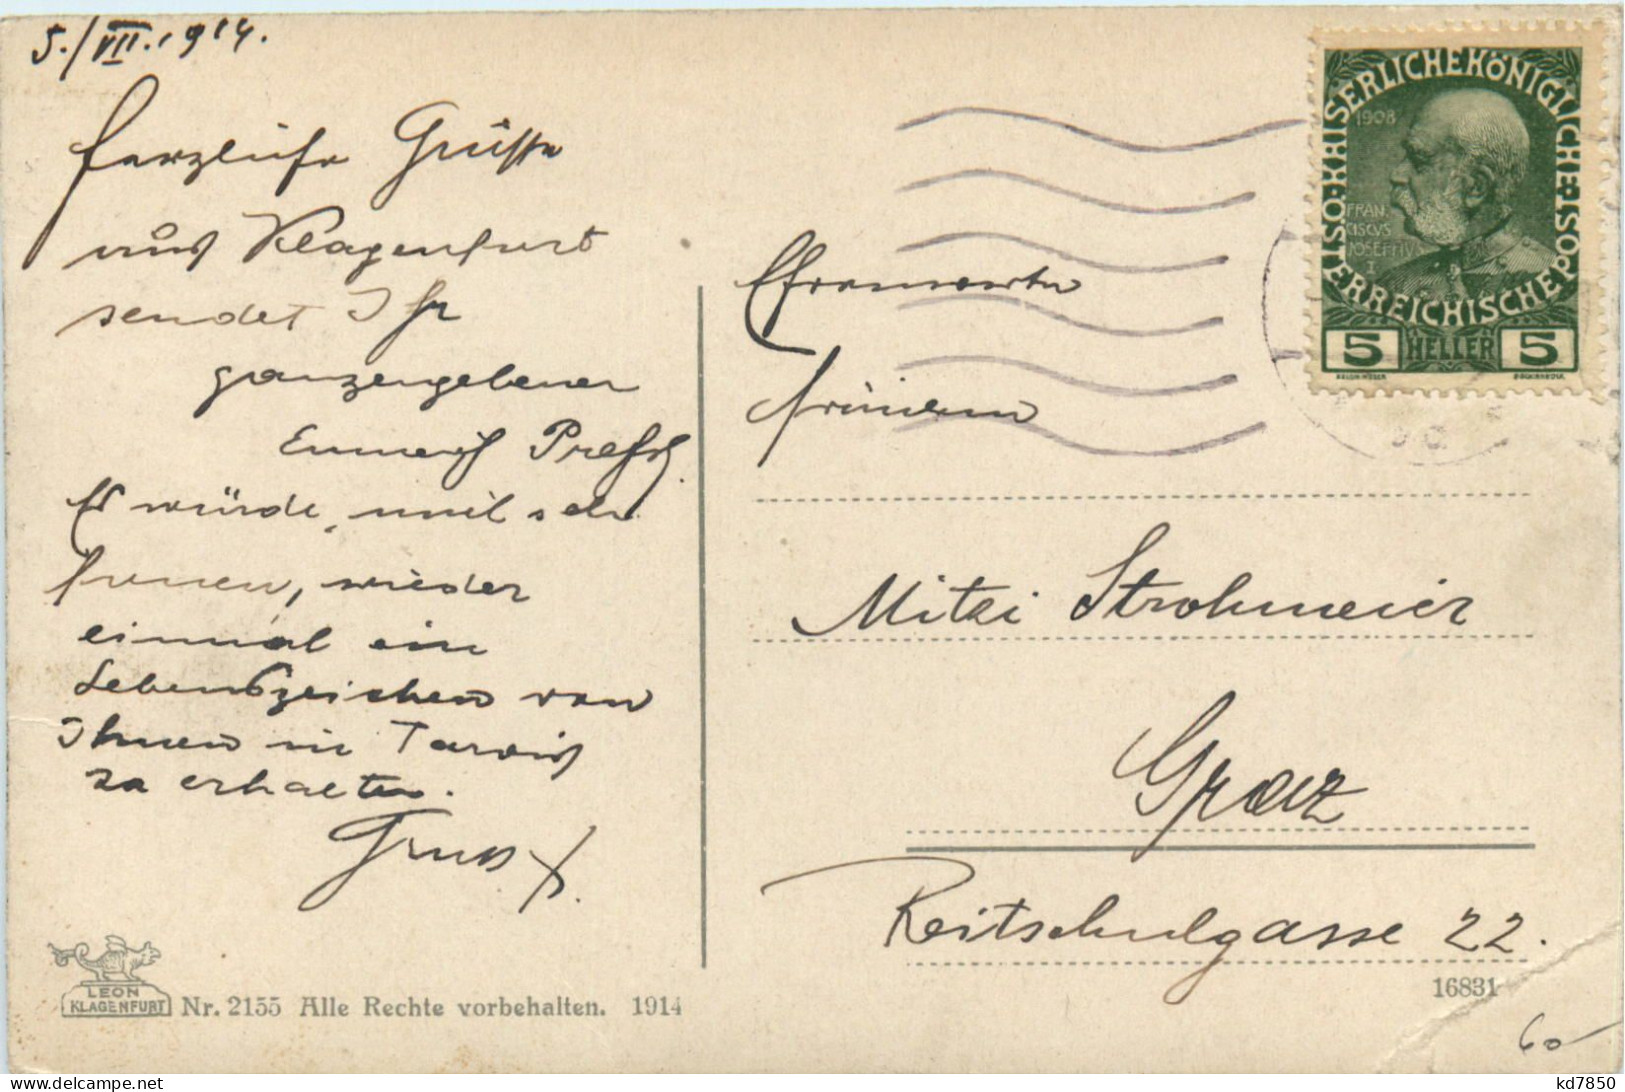 5./VII. 1914.
Herzliche Grüsse
aus Klagenfurt
sendet Ihr
ganzergebener
Emmerich
Es würde mich sehr
freuen, wieder
einmal ein
Lebenszeichen von
Ihnen in Tarvis
zu erhalten.
Gruss
LEON
KLAGENFURT
Nr. 2155 Alle Rechte vorbehalten. 1914
KAISERLICHE KÖNIGLICHE ÖSTERREICHISCHE POST
1908
FRAN
CISCVS
IOSEPHVS
I
5 HELLER 5
Ehrenwerte
Fräulein
Mitzi Strohmeier
Graz
Reitschulgasse 22.
16831
60
kd7850